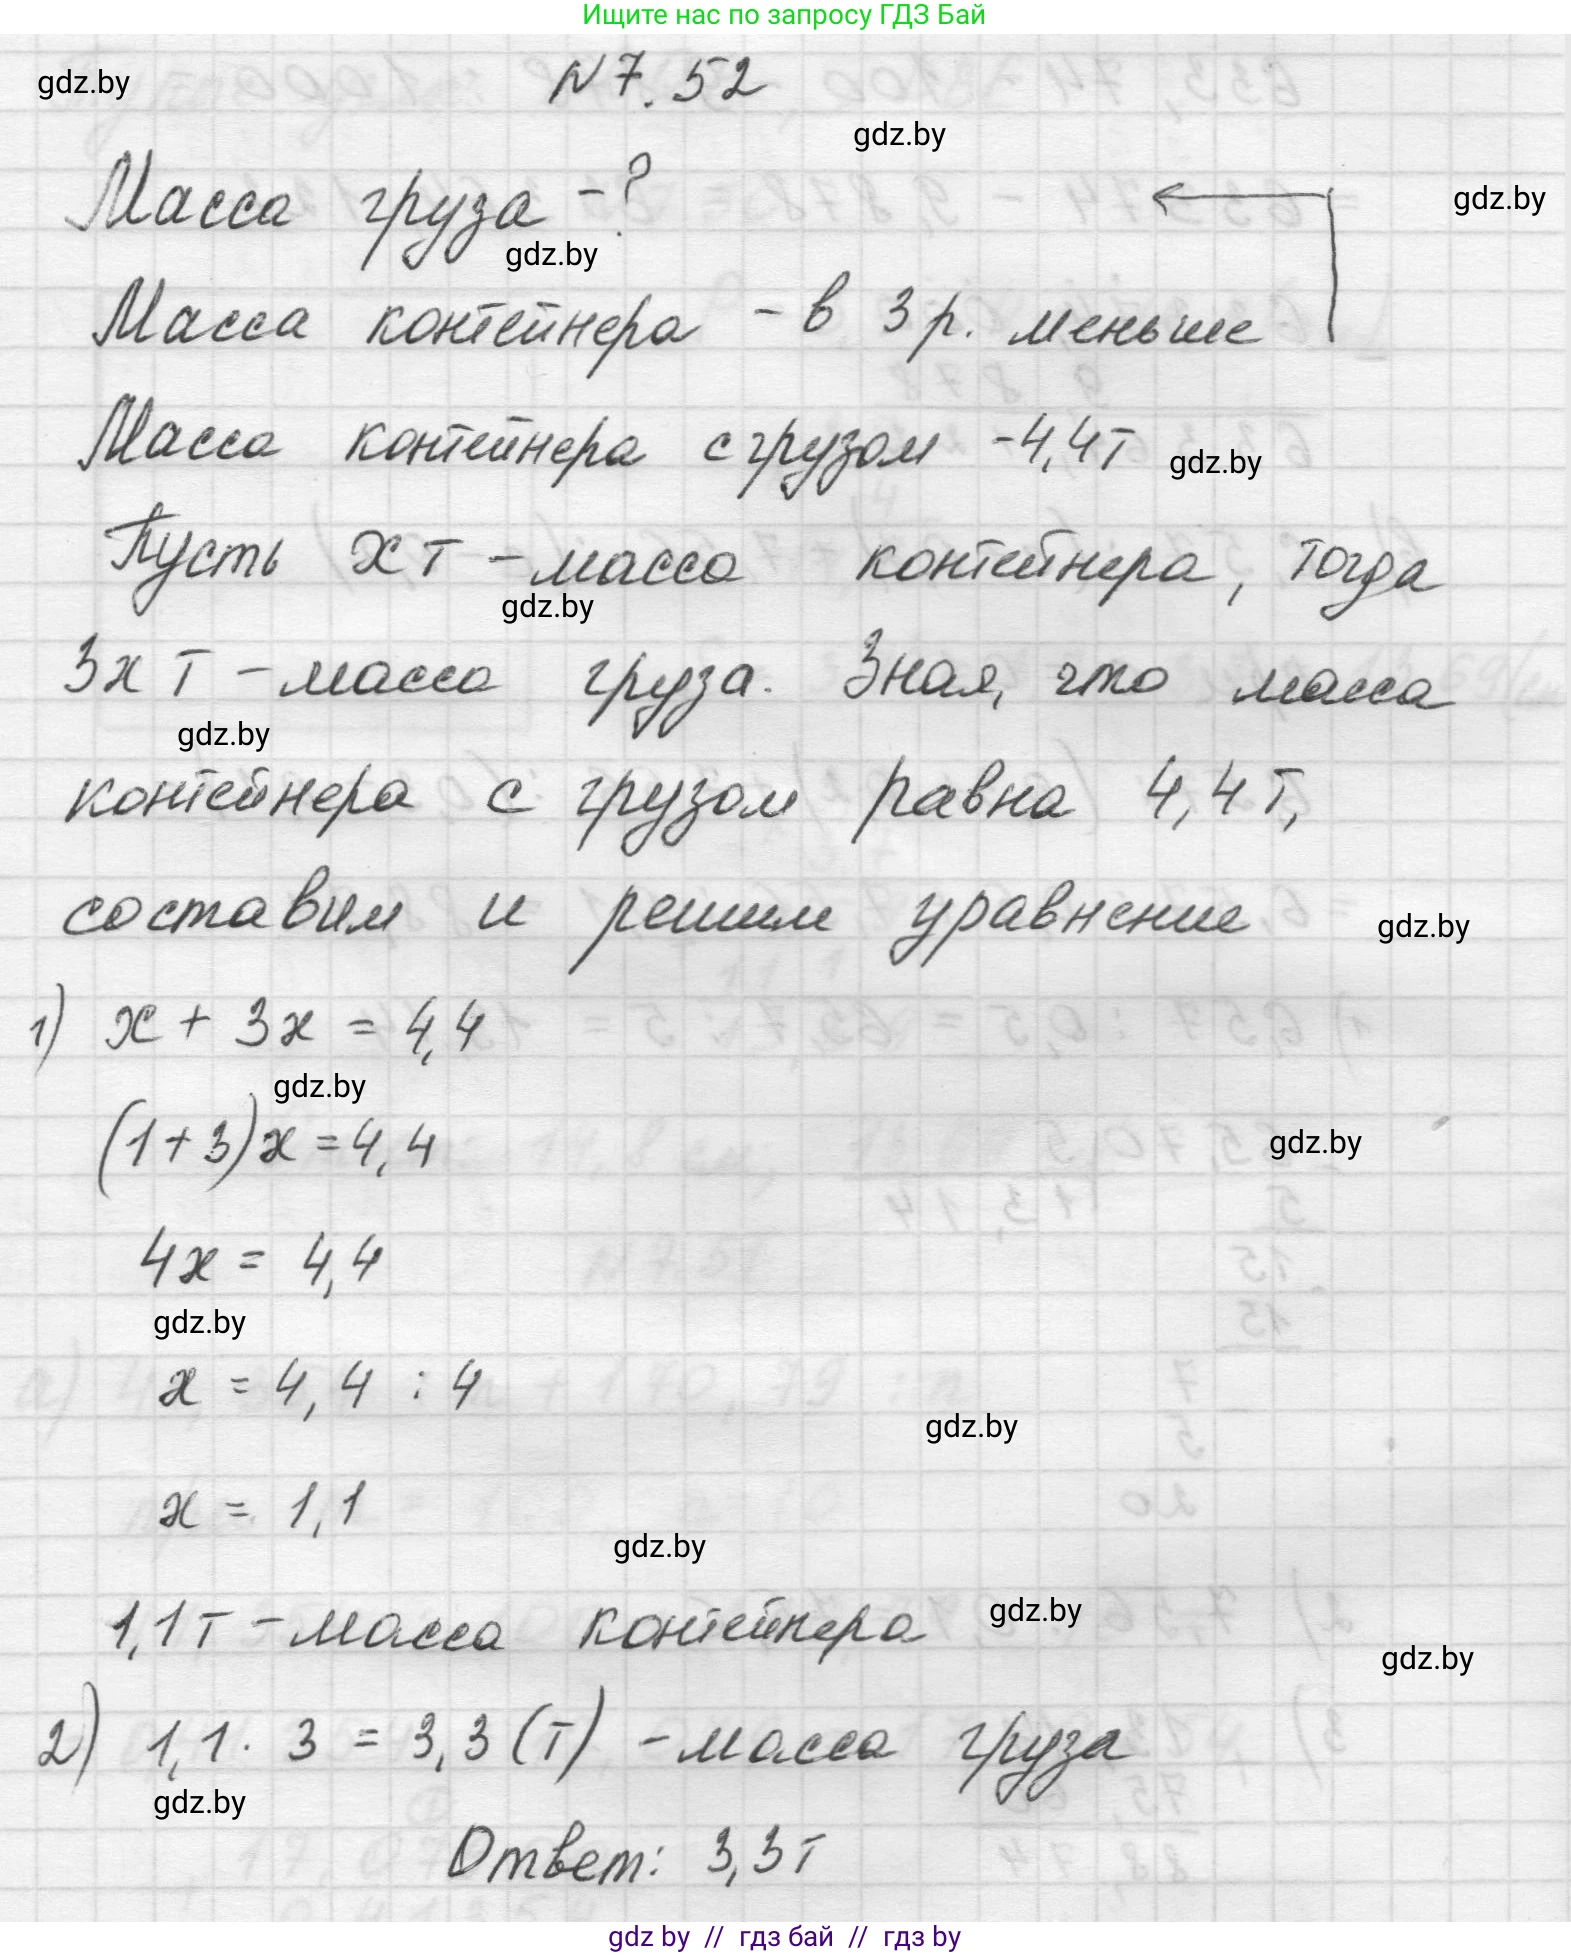 Ищите нас по запросу ГДЗ Бай
N 7.52
gdz.by
gdz.by
Масса груза - ?
gdz.by
gdz.by
Масса контейнера - в 3 р. меньше
Масса контейнера с грузом - 4,4т
gdz.by
Пусть x т - масса контейнера, тогда
gdz.by
3x т - масса груза. Зная, что масса
gdz.by
контейнера с грузом равна 4,4 т,
составим и решим уравнение
gdz.by
1) x + 3x = 4,4
gdz.by
(1+3)x = 4,4
gdz.by
4x = 4,4
gdz.by
x = 4,4 : 4
gdz.by
x = 1,1
gdz.by
1,1 т - масса контейнера
gdz.by
gdz.by
2) 1,1 · 3 = 3,3 (т) - масса груза
gdz.by
Ответ: 3,3 т
gdz by // гдз бай // гдз by